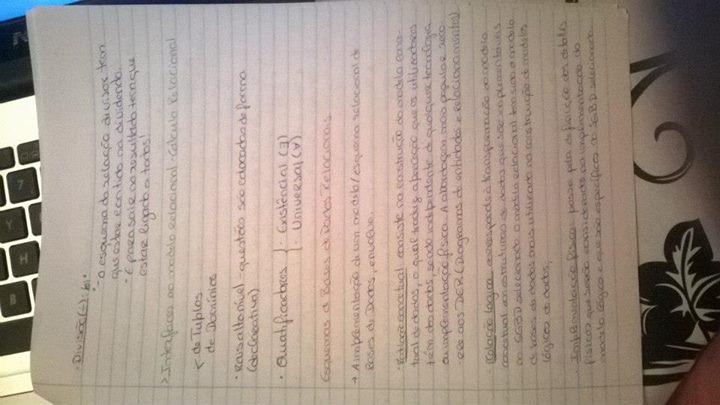 · Divisão (÷): b:"
"- o esquema da relação divisor tem
que estar contido na dividendo.
- E para sair no resultado tem que
estar ligado a todos!
> Interfaces ao modelo relacional - Cálculo Relacional
< de Tuplos
de Domínios
· Mais alto nível - questões são colocadas de forma
(declarativa)
· Qualificadores } · Existêncial (∃)
· Universal (∀)
Esquemas de Bases de Dados Relacionais
→ A implementação de um modelo/esquema relacional de
Bases de Dados, envolve:
· consiste na construção do modelo conce-
tual de dados, o qual traduz a percepção que os utilizadores
têm dos dados, sendo independente de qualquer tecnologia
ou implementação física. A abordagem mais popular é
aos DER (Diagramas de entidades e Relacionamentos)
· lógica corresponde à transformação do modelo
concetual em estruturas de dados que são implementáveis
no SGBD selecionado o modelo relacional tem sido o modelo
de bases de dados mais utilizado na construção de modelos
lógicos de dados;
· Implementação física: passa pela definição dos detalhes
físicos que serão na implementação do
modelo lógico e que são específicos do SGBD selecionado.